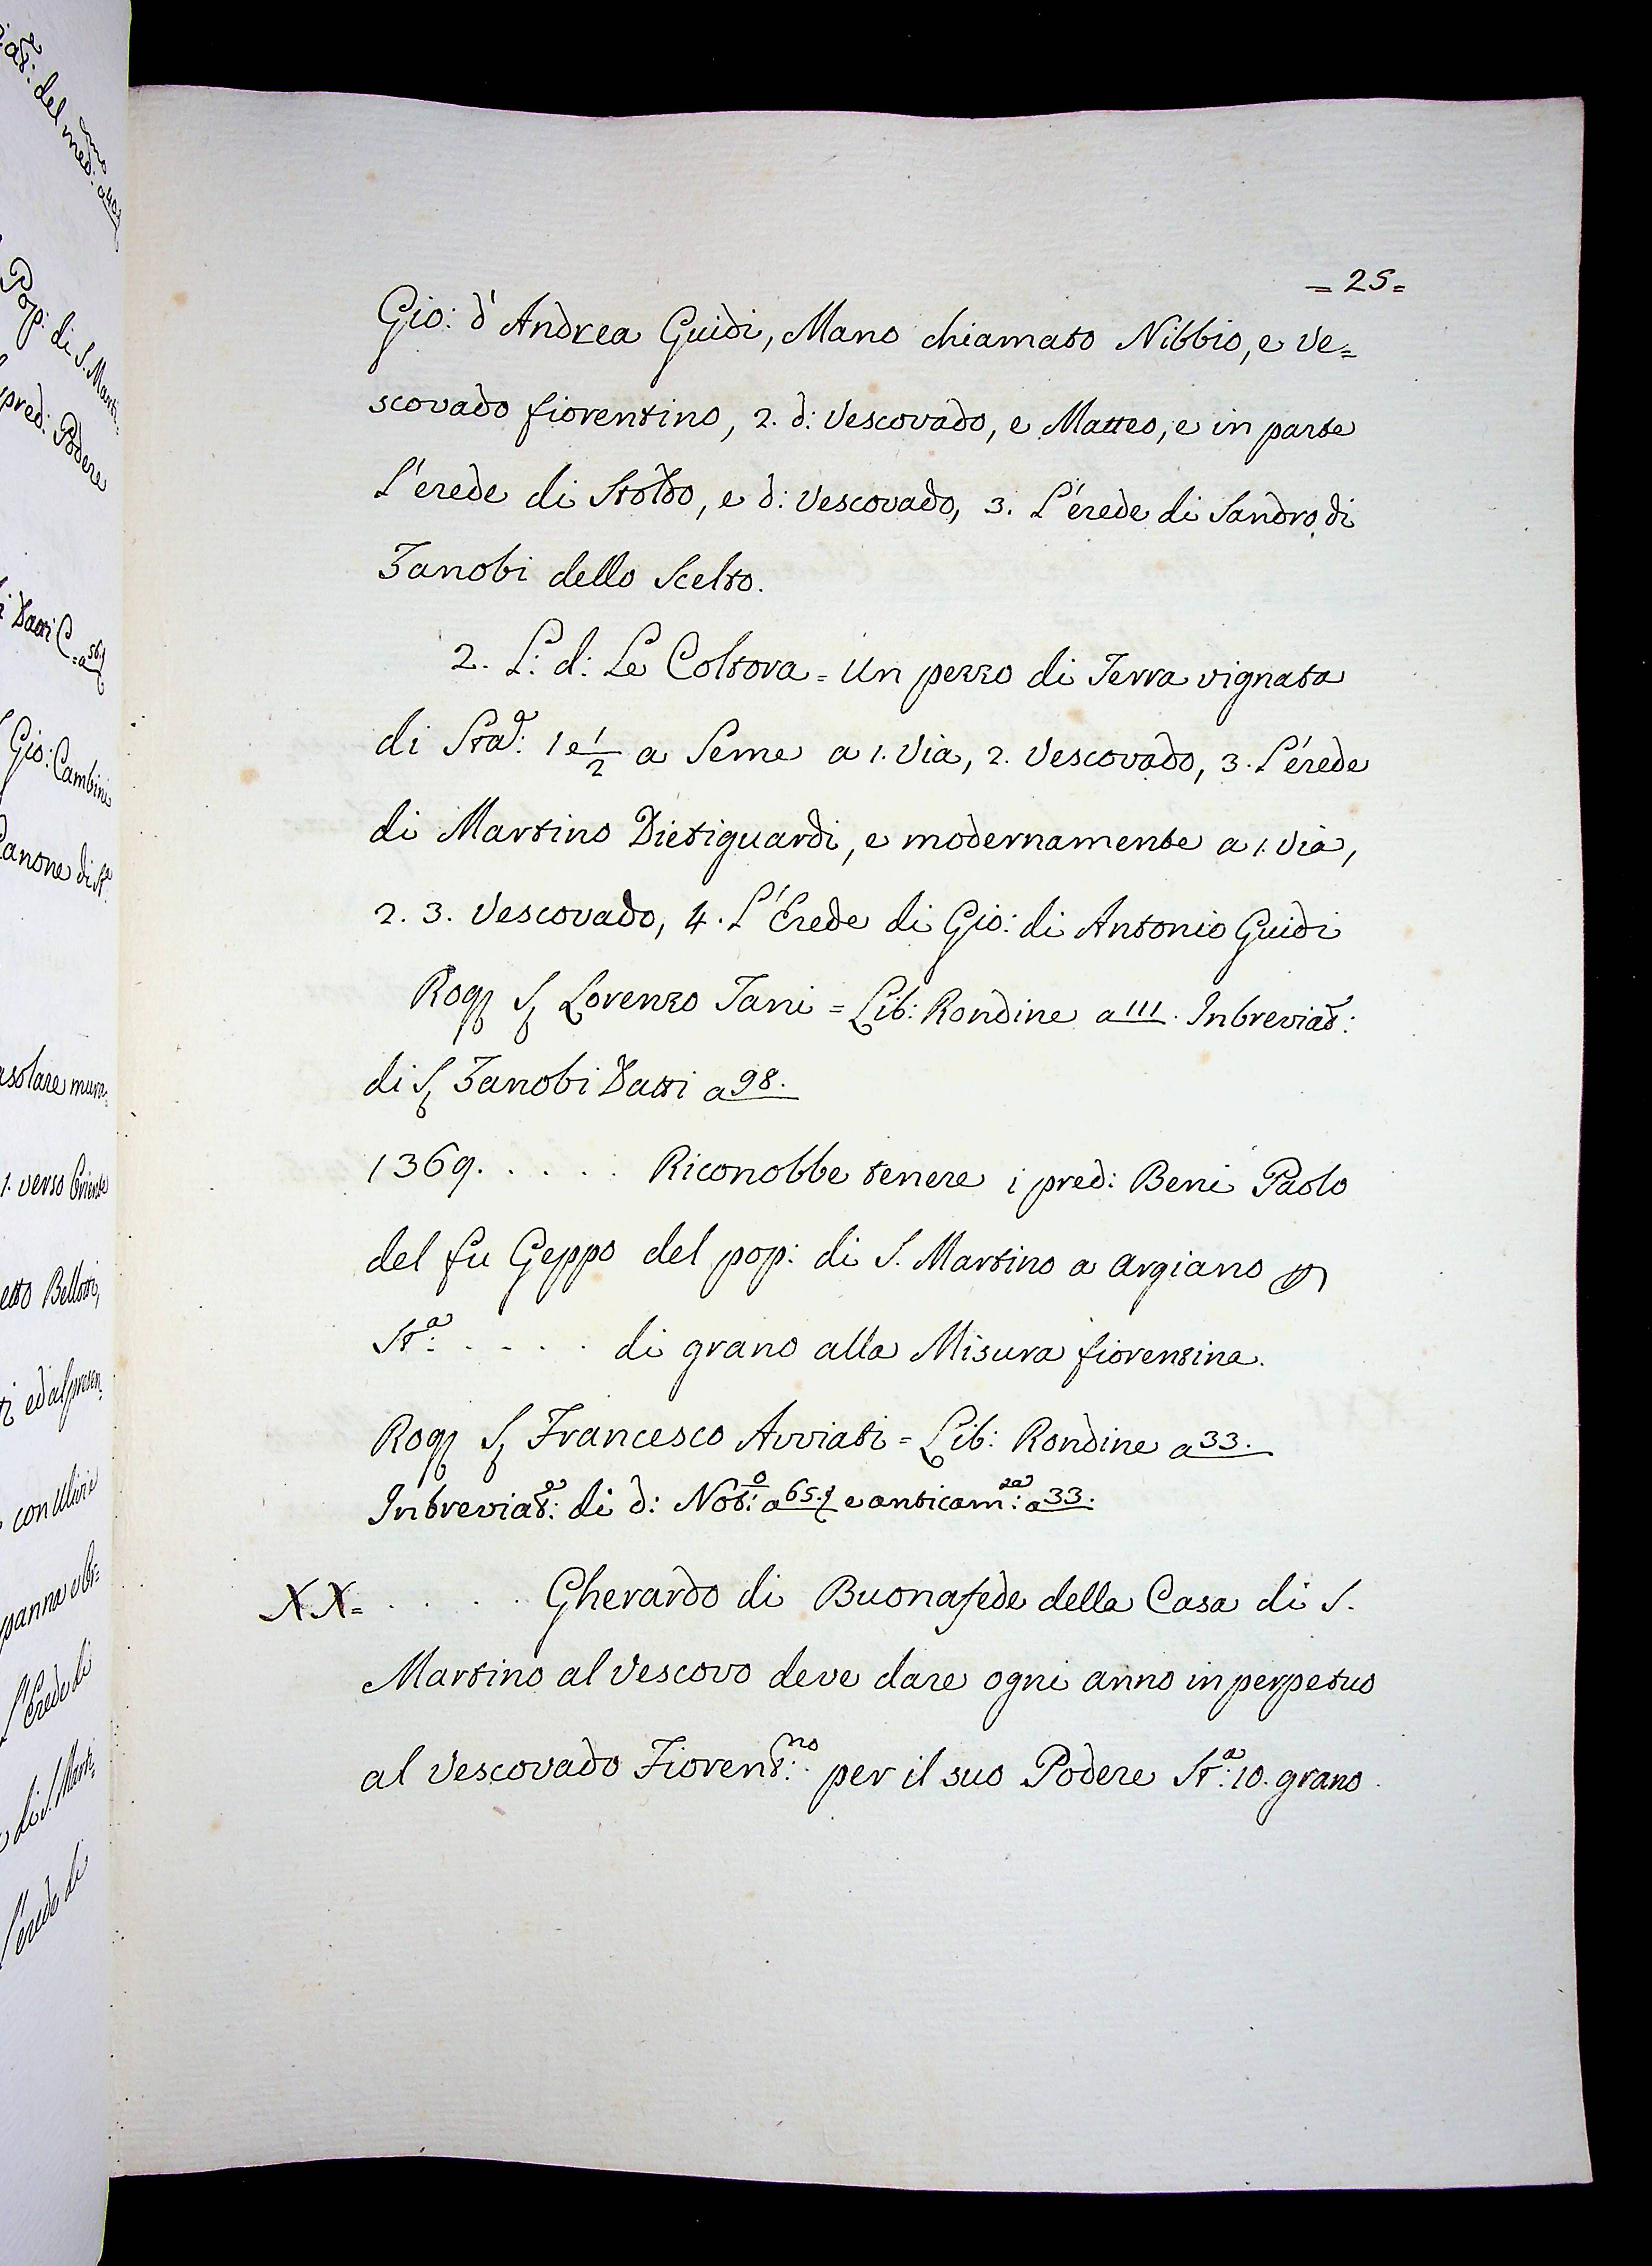 = 25 =
Gio: d'Andrea Guidi, Mano chiamato Nibbio, e Ve=
scovado fiorentino, 2. d: Vescovado, e Matteo, e in parte
l'erede di Stoldo, e d: Vescovado, 3. L'erede di Sandro di
Zanobi dello Scelto.
2. L: d: Le Coltora = Un pezzo di Terra vignata
di Staa: 1 e 1/2 a Seme a 1. Via, 2. Vescovado, 3. L'erede
di Martino Dietiguardi, e modernamente a 1. Via,
2. 3. Vescovado, 4. L'Erede di Gio: di Antonio Guidi
Rog. S. Lorenzo Tani = Lib: Rondine a 111. Inbreviat:
di S. Zanobi Datti a 98.
1369. . . . . . Riconobbe tenere i pred: Beni Paolo
del fu Geppo del pop: di S. Martino a Argiano p
Sta: . . . . di grano alla Misura fiorentina.
Rog. S. Francesco Avviati = Lib: Rondine a 33.
Inbreviate: di d: Noto: a 65. e anticam: a 33.
XX= . . . . Gherardo di Buonafede della Casa di S.
Martino al Vescovo deve dare ogni anno in perpetuo
al Vescovado Fiorent:no per il suo Podere Sta: 10. grano
Pop: di S. Marti:
pred: Podere
Datti
Gio: Cambini
Canone di Sta
1. verso Oriente
Bellotto,
ed al presen
con Ulivi
L'Erede di
di S. Mart:
l'erede di